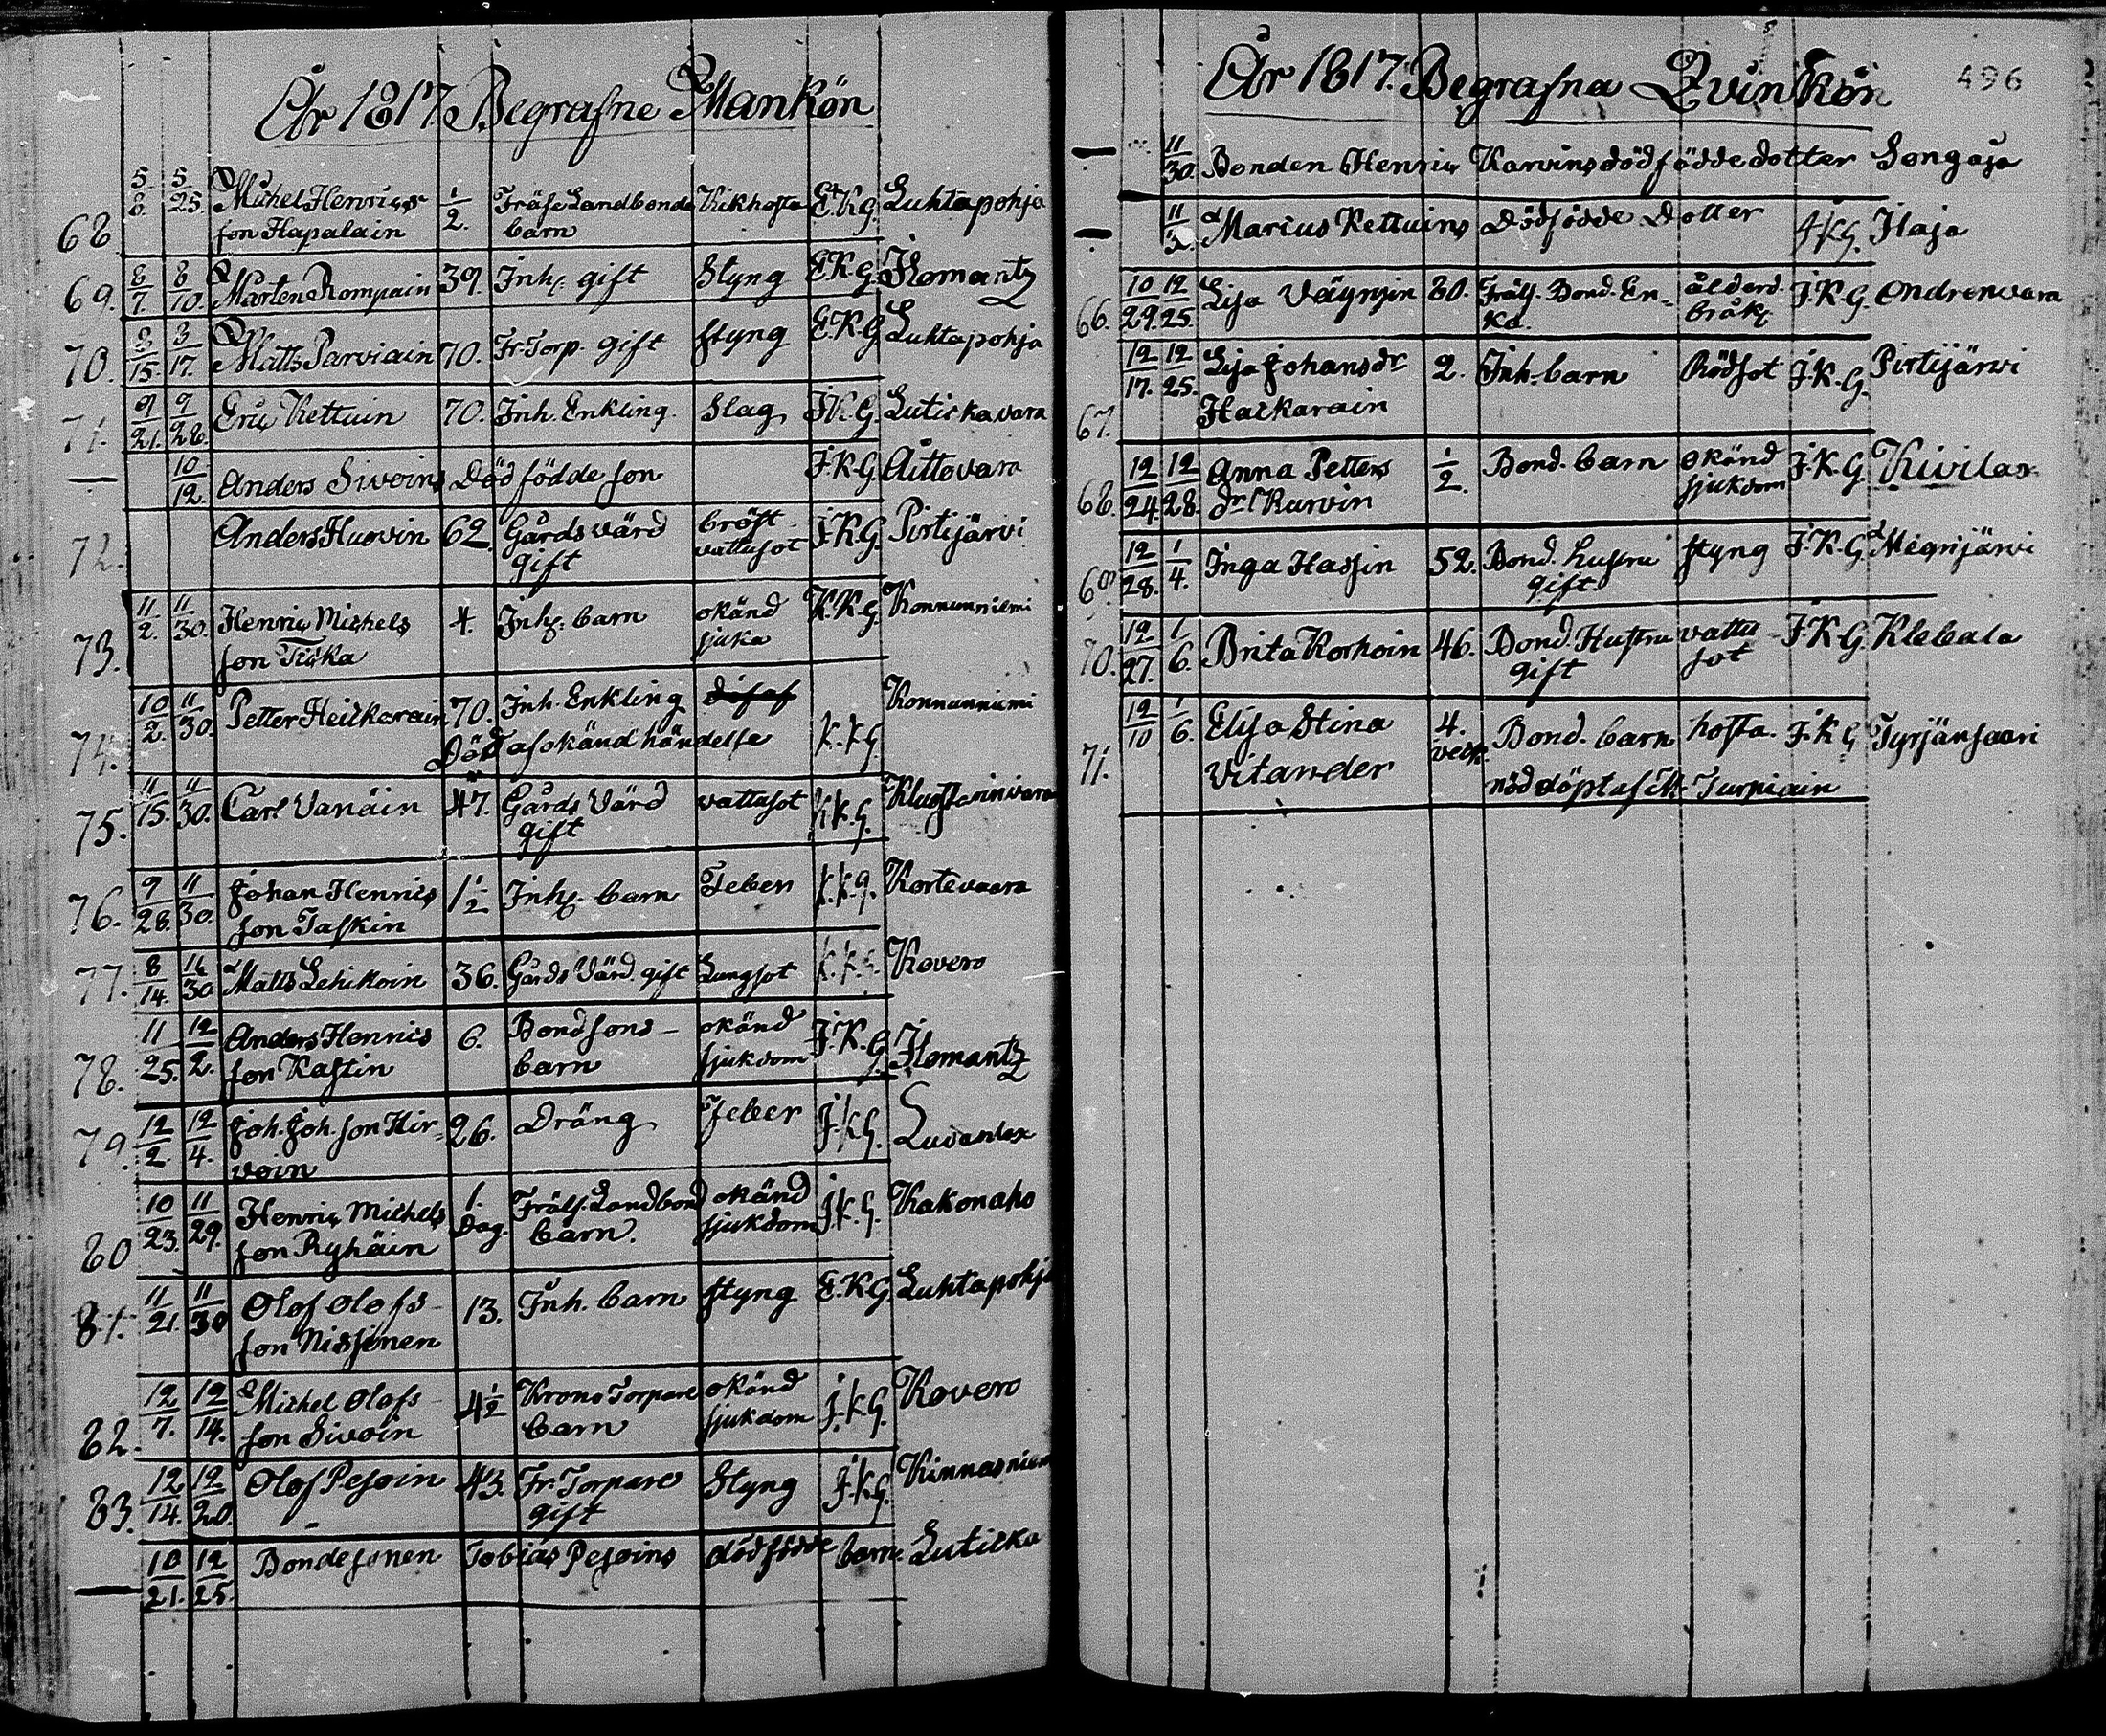 År 1817 Begrafne Mankön
68 5/8. 5/25. Michel Henrics 1/2. Frälse Landbonde Kikhosta E.K.G. Luhtapohja
son Hapalain barn
69. 8/7. 8/10. Mårten Rompain 39. Inh. gift Styng E.K.G. Ilomantz
70. 8/15. 8/17. Matts Parviain 70. Fr. Torp. gift styng E.K.G. Luhtapohja
71. 9/21. 9/28. Eric Kettuin 70. Inh. Enkling. Slag I.K.G. Lutickavara
— 10/12. Anders Sivoins Död födde son I.K.G. Aittovara
72. Anders Huovin 62. Gårds värd bröst- I.K.G. Pirtijärvi
gift vattusot
73. 11/2. 11/30. Henric Michels 4. Inh. barn okänd K.K.G. Konnunniemi
son Tiska sjuka
74. 10/2. 11/30. Petter Heickarain 70. Inh. Enkling Konnunniemi
Död af okänd händelse K.K.G.
75. 11/15. 11/30. Carl Vanäin 47. Gårds Värd vattusot K.K.G.
gift
76. 9/28. 11/30. Johan Henrics 1 1/2 Inh. barn Feber K.K.G. Kortevaara
son Taskin
77. 8/14. 11/30 Matts Lehikoin 36. Gårds Värd. gift Lungsot K.K.G. Kovero
78. 11/25. 12/2. Anders Henrics 6. Bondsons- okänd I.K.G. Ilomantz
son Kastin barn sjukdom
79. 12/2. 12/4. Joh. Joh. son Hir- 26. Dräng Feber I.K.G. Luvanlax
voin
80 10/23. 11/29. Henric Michels 1. Frälse Landbond okänd I.K.G. Kakonaho
son Ryhäin Dag. barn. sjukdom
81. 11/21. 11/30 Olof Olofs- 13. Inh. barn styng E.K.G. Luhtapohja
son Nissinen
82. 12/7. 12/14. Michel Olofs- 4 1/2 Krono Torpare okänd I.K.G. Kovero
son Sivoin barn sjukdom
83. 12/14. 12/20. Olof Pesoin 43. Fr. Torpare Styng I.K.G. Kinnasniem
gift
— 10/21. 12/25. Bondesonen Tobias Pesoins dödfödde barn. Luticka
År 1817. Begrafna Qvinkön 496
— 11/30. Bonden Henric Karvins dödfödde dotter Songaja
— Marcus Kettuins Dödfödde Dotter I.K.G. Ilaja
66. 10/29. 12/25. Lisa Väyrysin 80. Frälse Bond. En- ålderd. I.K.G. Endrenvara
ka. bråk
67. 12/17. 12/25. Lisa Johansdr 2. Inh. barn Rödsot I.K.G. Pirtijärvi
Hackarain
68. 12/24. 12/28. Anna Petters 1/2. Bond. barn okänd I.K.G. Kivilax
dr Kurvin sjukdom
69. 12/28. 1/4. Inga Hassin 52. Bond. hustru styng I.K.G. Megrijärvi
gift
70. 12/27. 1/6. Brita Korhoin 46. Bond. Hustru vattu I.K.G. Klebala
gift sot
71. 12/10 1/6. Elisa Stina 4. Bond. barn hosta. I.K.G Tyrjänsaari
Vitander veck.
nöd döpt af M. Turpiain